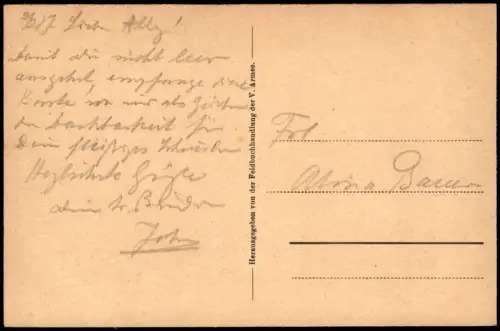 Liebe Ally!
Damit du nicht leer
ausgehst, empfange diese
Karte von mir als Zeichen
der Dankbarkeit für
Dein fleißiges Schreiben
Herzlichste Grüße
dein tr. Bruder
Herausgegeben von der Feldbuchhandlung der V. Armee.
Frl
Bauer